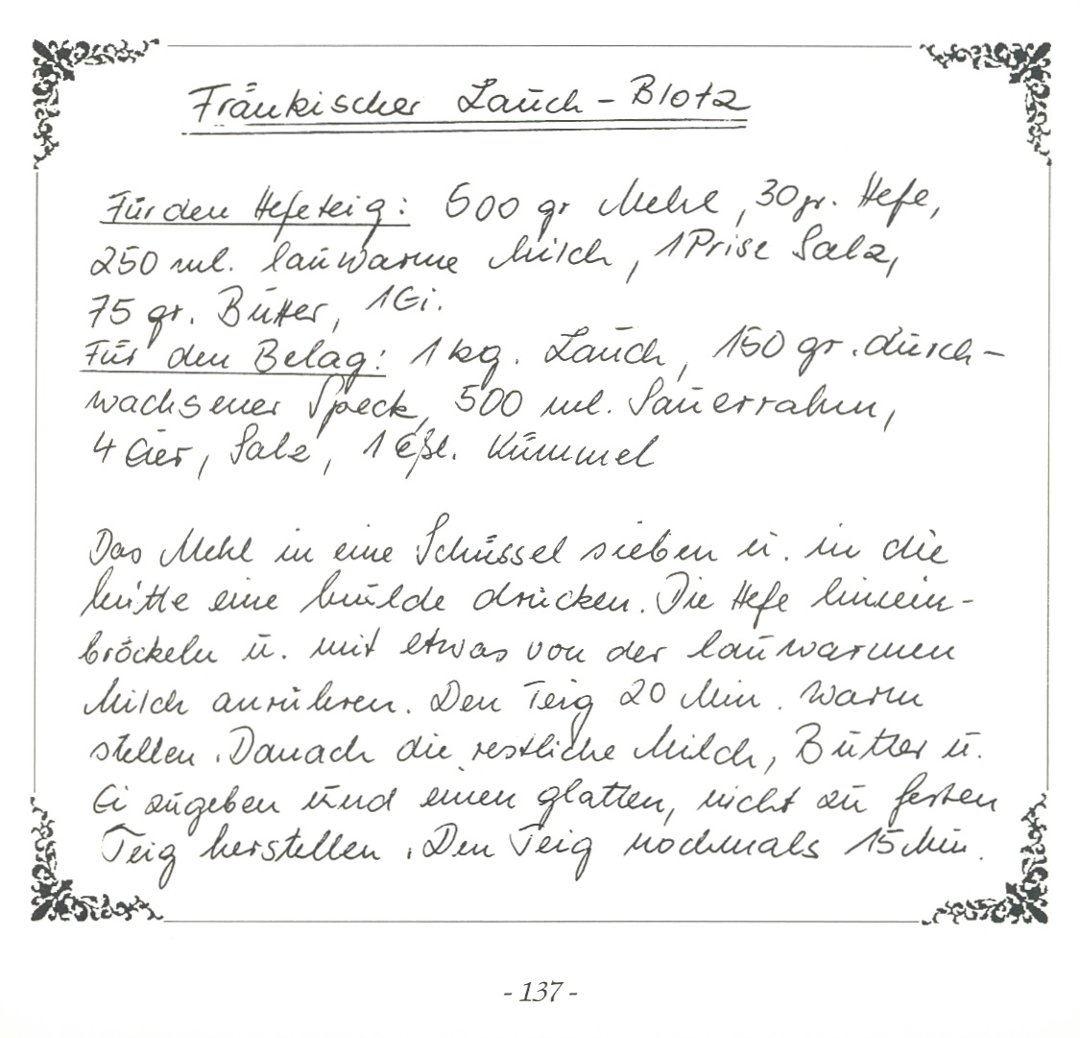 Fränkischer Lauch - Blotz
Für den Hefeteig: 500 gr Mehl, 30 gr. Hefe,
250 ml. lauwarme Milch, 1 Prise Salz,
75 gr. Butter, 1 Ei.
Für den Belag: 1 kg. Lauch, 150 gr. durch-
wachsener Speck, 500 ml. Sauerrahm,
4 Eier, Salz, 1 Eßl. Kümmel
Das Mehl in eine Schüssel sieben u. in die
Mitte eine Mulde drücken. Die Hefe hinein-
bröckeln u. mit etwas von der lauwarmen
Milch anrühren. Den Teig 20 Min. warm
stellen. Danach die restliche Milch, Butter u.
Ei zugeben und einen glatten, nicht zu festen
Teig herstellen. Den Teig nochmals 15 Min.
- 137 -